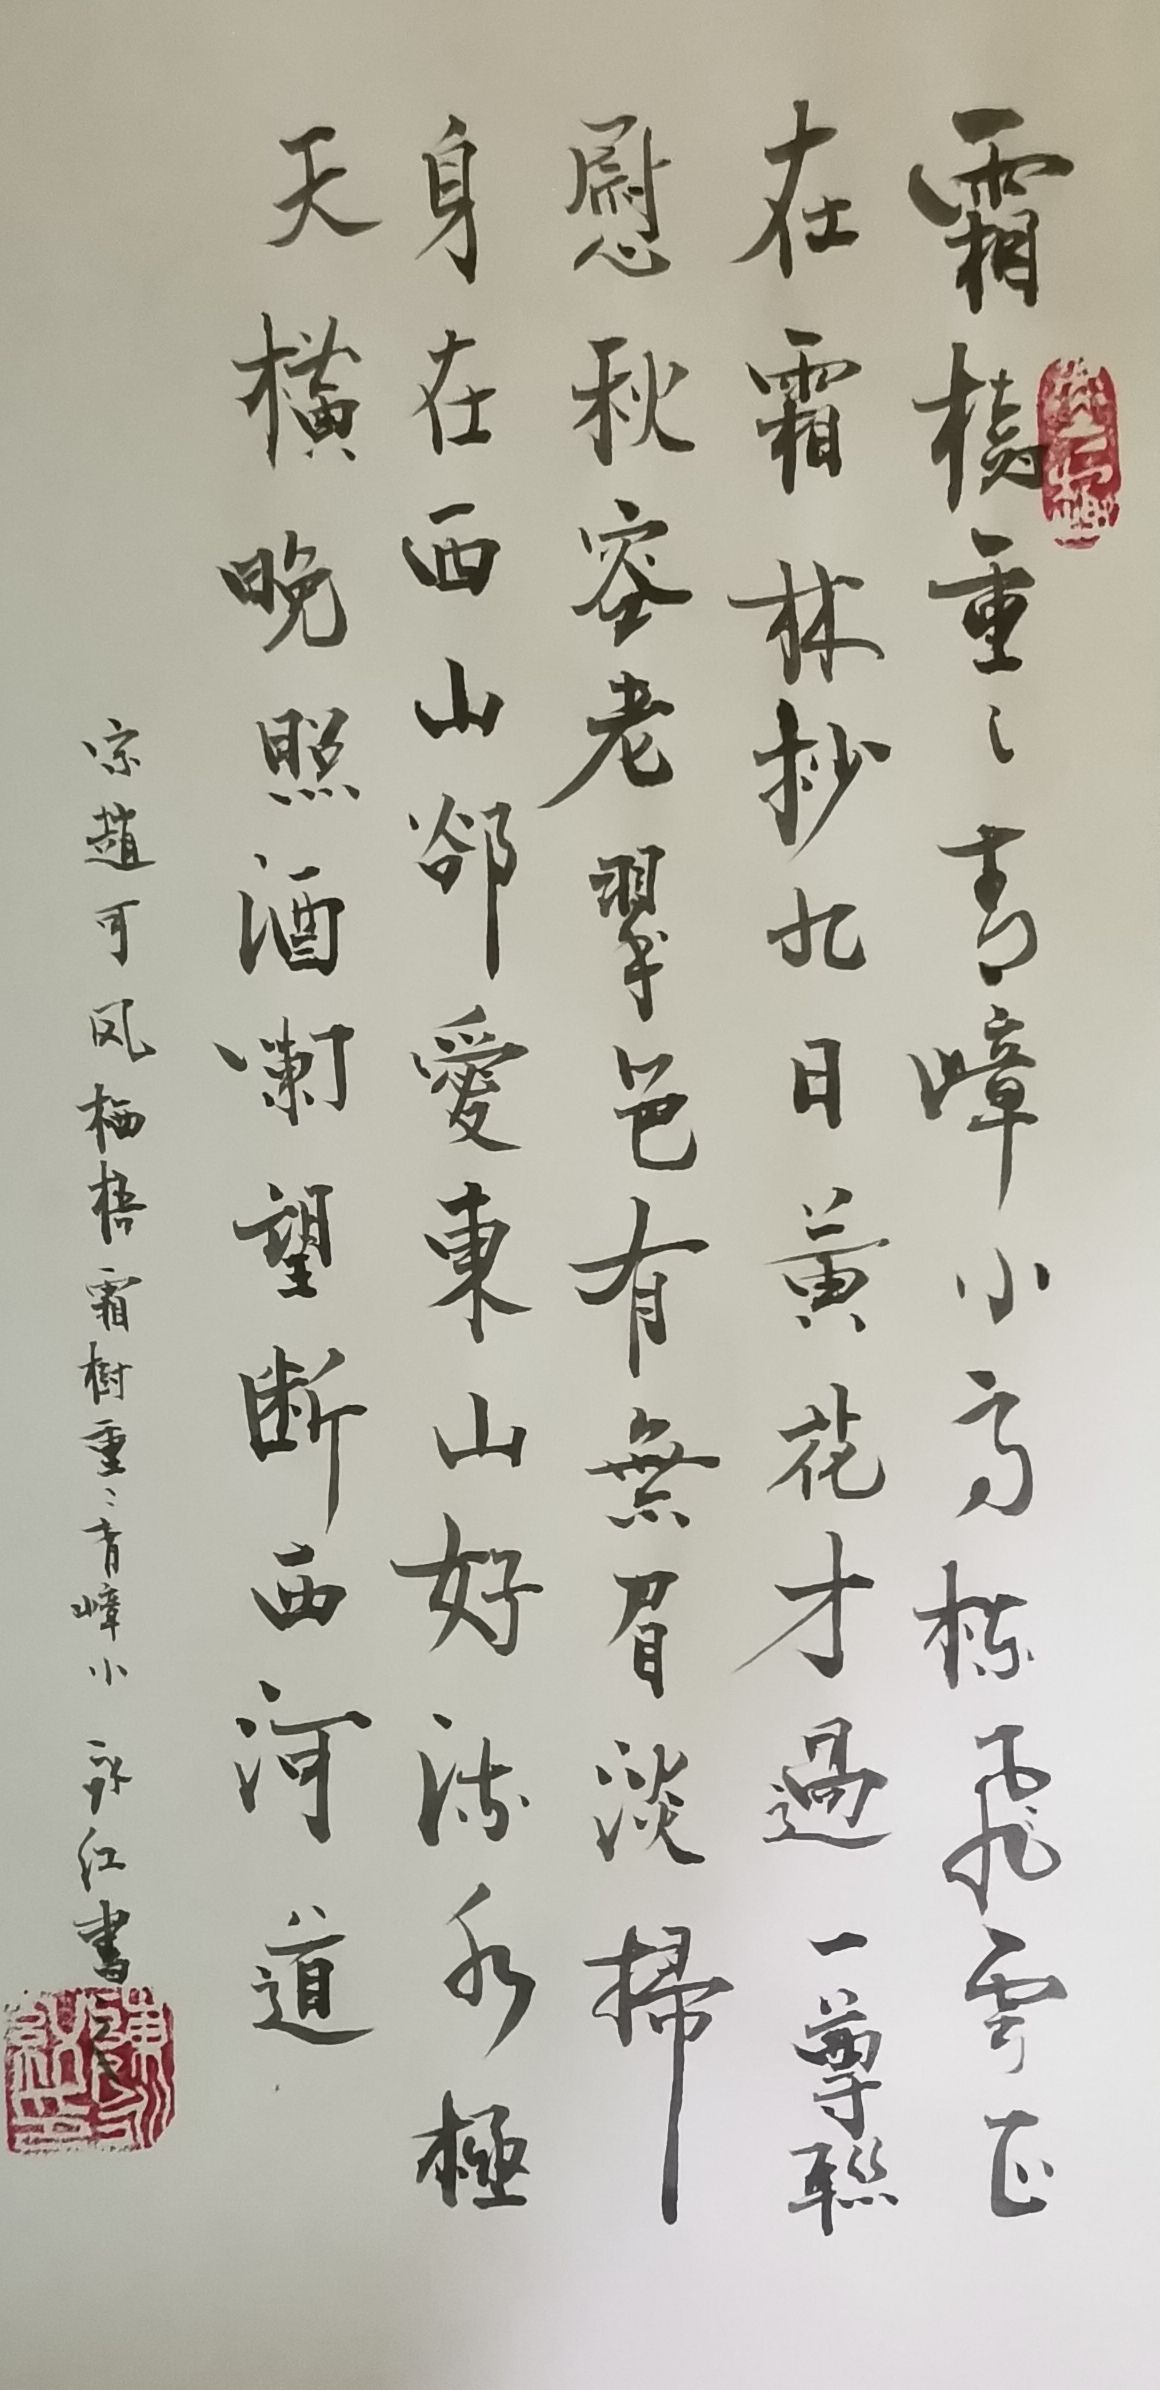 霜樹重〻青嶂小高棟飛雲正
在霜林抄九日黃花才過一尊聊
慰秋容老翠色有無眉淡掃
身在西山郤愛東山好流水極
天橫晚照酒闌望断西河道
宗趙可风栖梧霜樹重〻青嶂小 永红書